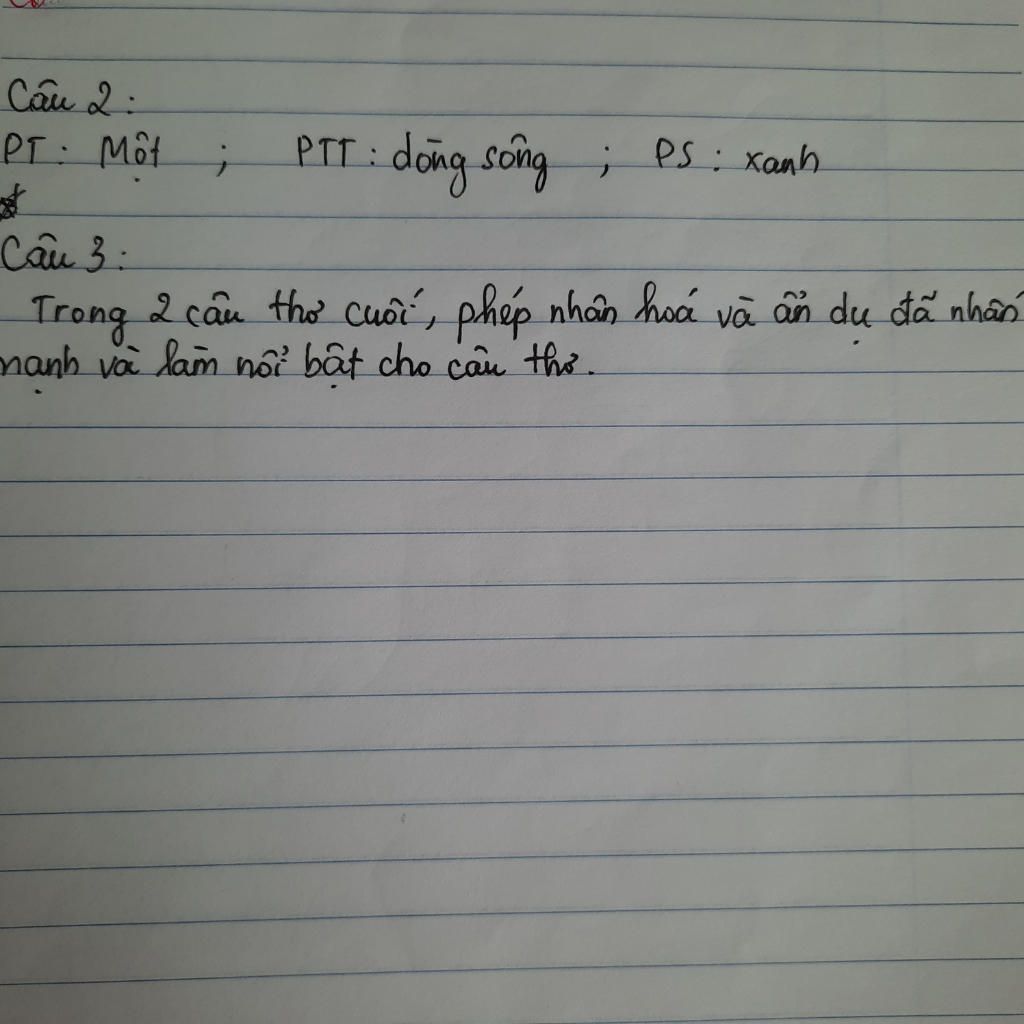 Câu 2 :
PT : Một ; PTT : dòng sông ; PS : xanh
Câu 3 :
Trong 2 câu thơ cuối, phép nhân hoá và ẩn dụ đã nhấn
mạnh và làm nổi bật cho câu thơ.